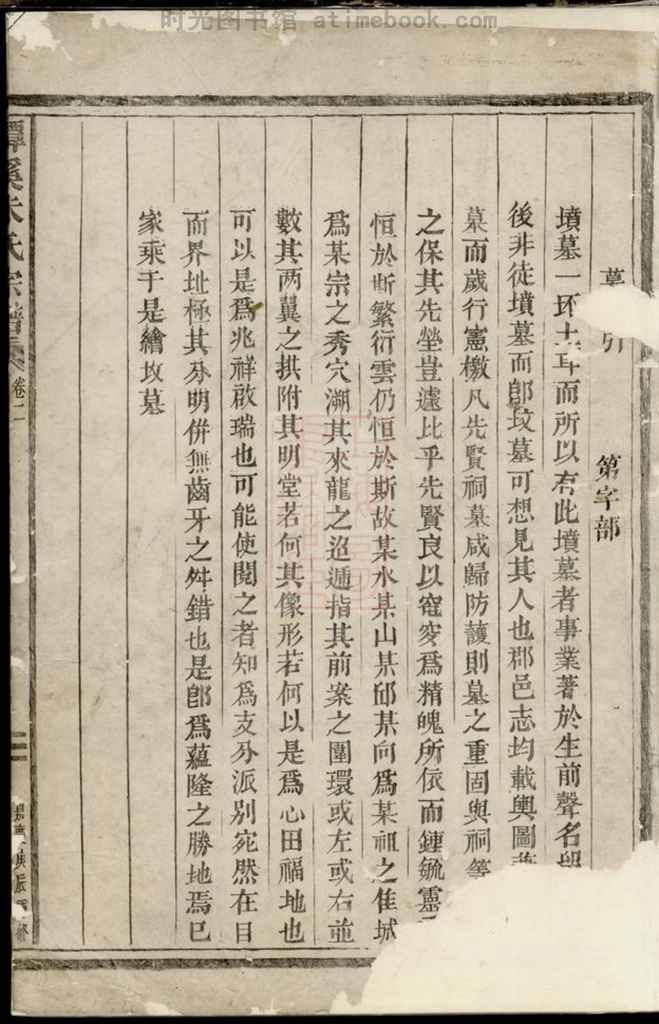 时光图书馆 atimebook.com
引 第字部
墳墓一抔土耳而所以有此墳墓者事業著於生前聲名
後非徒墳墓而卽坟墓可想見其人也郡邑志均載輿圖
墓而歲行憲檄凡先賢祠墓咸歸防護則墓之重固與祠等
之保其先塋豈遽比乎先賢良以窀穸爲精魄所依而鍾毓靈
恒於斯繁衍雲仍恒於斯故某水某山某邱某向爲某祖之佳城
爲某宗之秀穴溯其來龍之迢遞指其前案之圍環或左或右並
數其两翼之拱附其明堂若何其像形若何以是爲心田福地也
可以是爲兆祥啟瑞也可能使閱之者知爲支分派别宛然在目
而界址極其分明併無齒牙之舛錯也是卽爲蘊隆之勝地焉已
家乘于是繪坟墓
氏宗譜 卷二